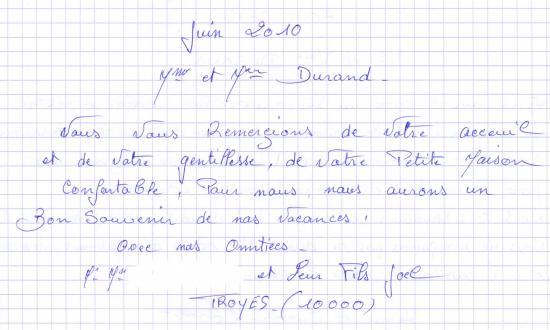 Juin 2010
Mme et Mr Durand -
Nous Vous Remerçions de Votre acceuil
et de Votre gentillesse, de Votre Petite Maison
Confortable, Pour nous, nous aurons un
Bon Souvenir de nos Vacances,
Avec nos Amitiées -
Mr Mme et Leur Fils Joel
TROYES - (10000)